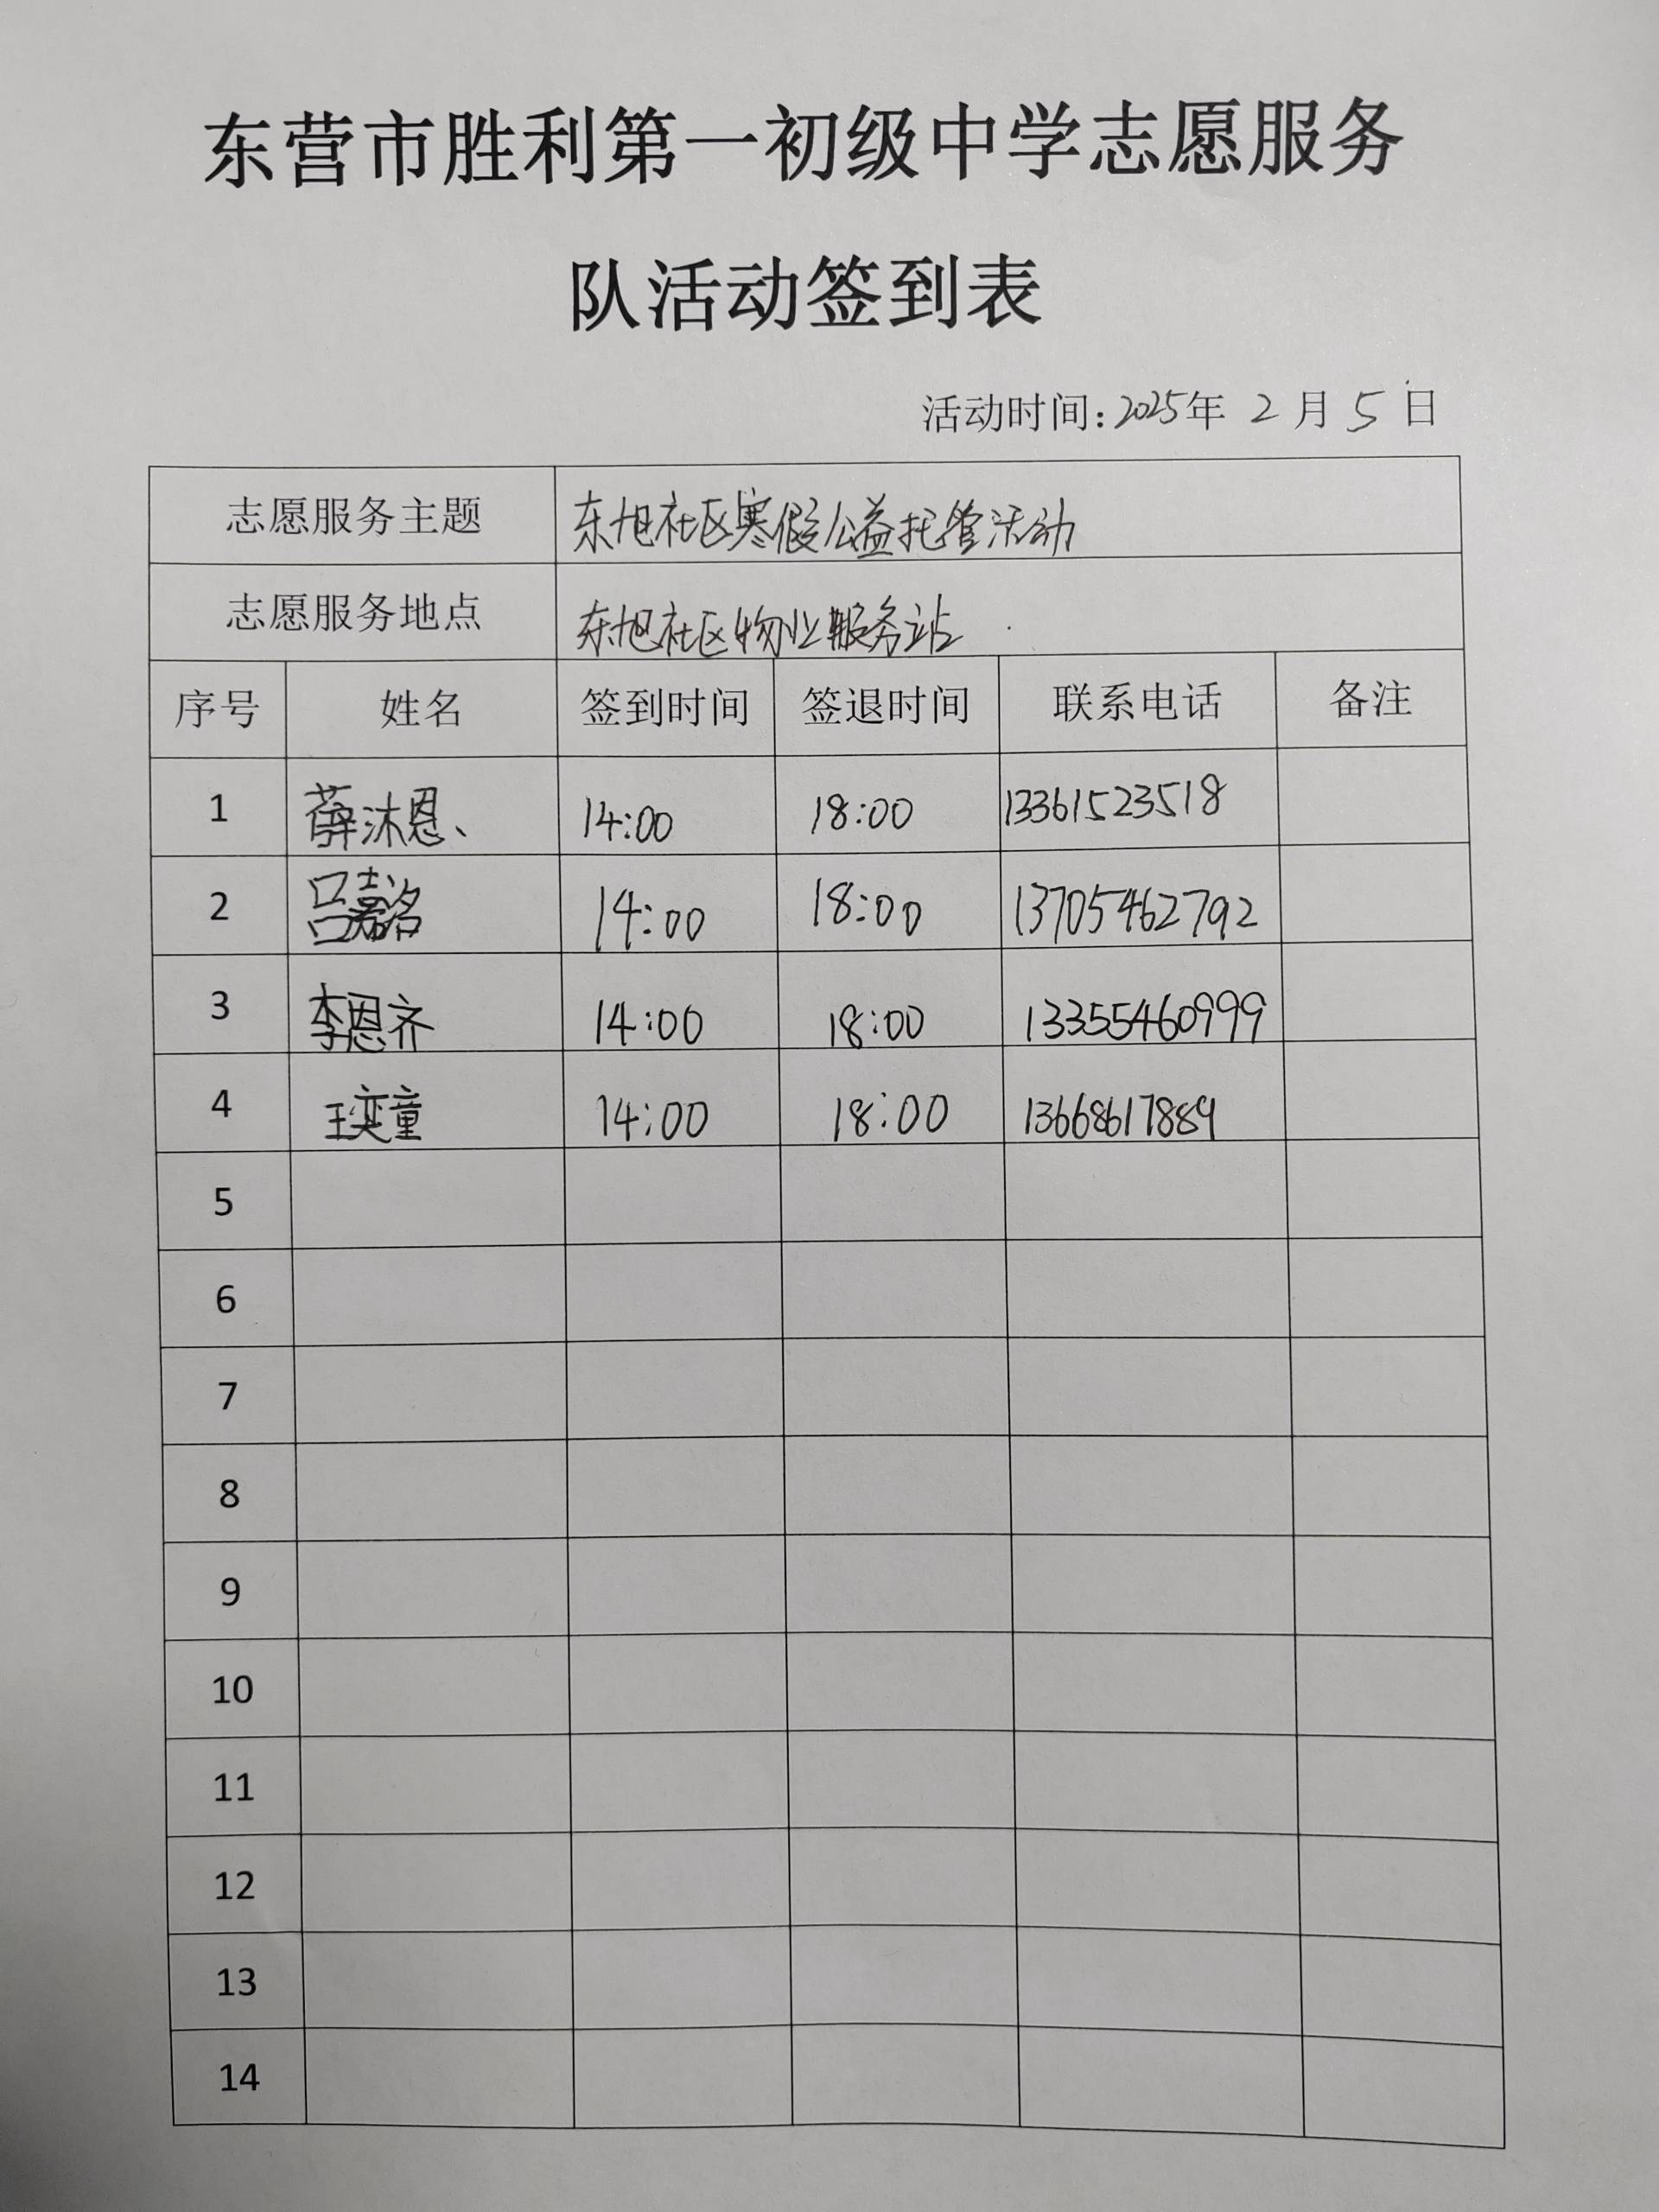 东营市胜利第一初级中学志愿服务
队活动签到表
活动时间:2025年 2 月 5 日
志愿服务主题 东旭社区寒假公益托管活动
志愿服务地点 东旭社区物业服务站
序号 姓名 签到时间 签退时间 联系电话 备注
1 薛沐恩、 14:00 18:00 13361523518
2 吕嘉洺 14:00 18:00 13705462792
3 李恩齐 14:00 18:00 13355460999
4 王奕童 14:00 18:00 13668617889
5
6
7
8
9
10
11
12
13
14